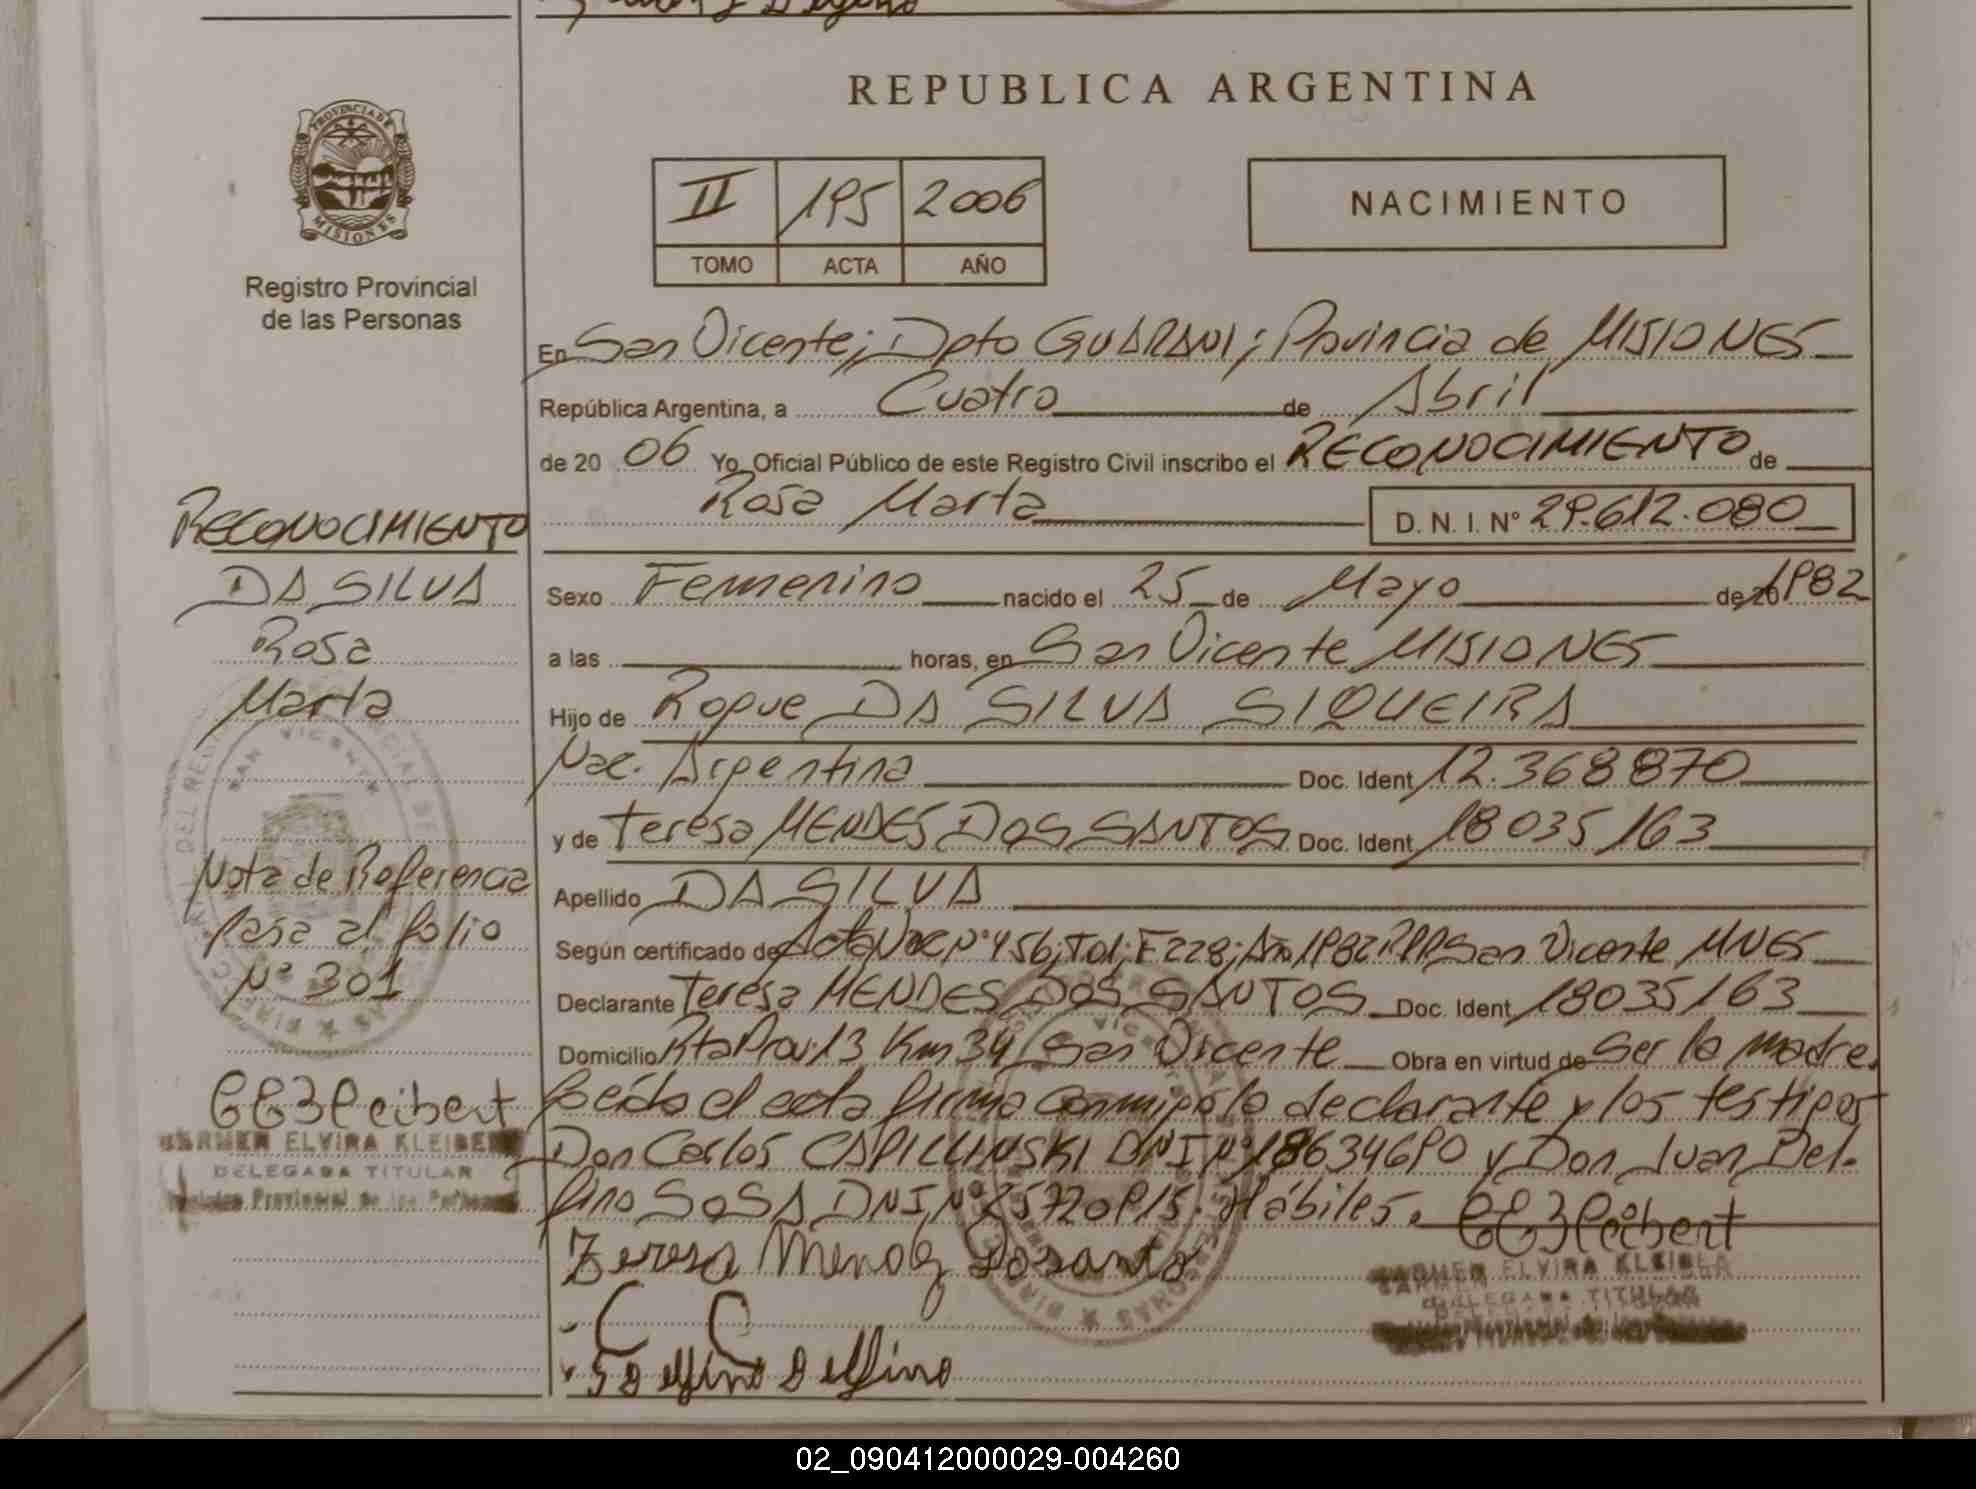 REPUBLICA ARGENTINA
PROVINCIA DE
MISIONES
Registro Provincial
de las Personas
II 195 2006
TOMO ACTA AÑO
NACIMIENTO
En San Vicente; Dpto GUARANI; Provincia de MISIONES
República Argentina, a Cuatro de Abril
de 20 06 Yo, Oficial Público de este Registro Civil inscribo el RECONOCIMIENTO de
Rosa Marta D. N. I. Nº 29.612.080
RECONOCIMIENTO
DA SILVA
Rosa
Marta
Sexo Femenino nacido el 25 de Mayo de 20 1982
a las horas, en San Vicente MISIONES
Hijo de Roque DA SILVA SIQUEIRA
Nac. Argentina Doc. Ident 12.368870
y de Teresa MENDES DOS SANTOS Doc. Ident 18035163
Apellido DA SILVA
Según certificado de Acta Nac Nº 456; Tº1; F228; Año 1982 RPP San Vicente MNES
Declarante Teresa MENDES DOS SANTOS Doc. Ident 18035163
Domicilio Rta Prov. 13 Km 34 San Vicente Obra en virtud de Ser la madre.
Leída el acta firma conmigo la declarante y los testigos
Don Carlos CAPILLINSKI DNI Nº 18634690 y Don Juan Del-
fino SOSA DNI Nº 25720915. Hábiles.
Nota de Referencia
Pasa al folio
Nº 301
CARMEN ELVIRA KLEIBERT
DELEGADA TITULAR
Registro Provincial de las Personas
Teresa Mendez Dosanto
CARMEN ELVIRA
DELEGADA TITULAR
Delfino
02_090412000029-004260